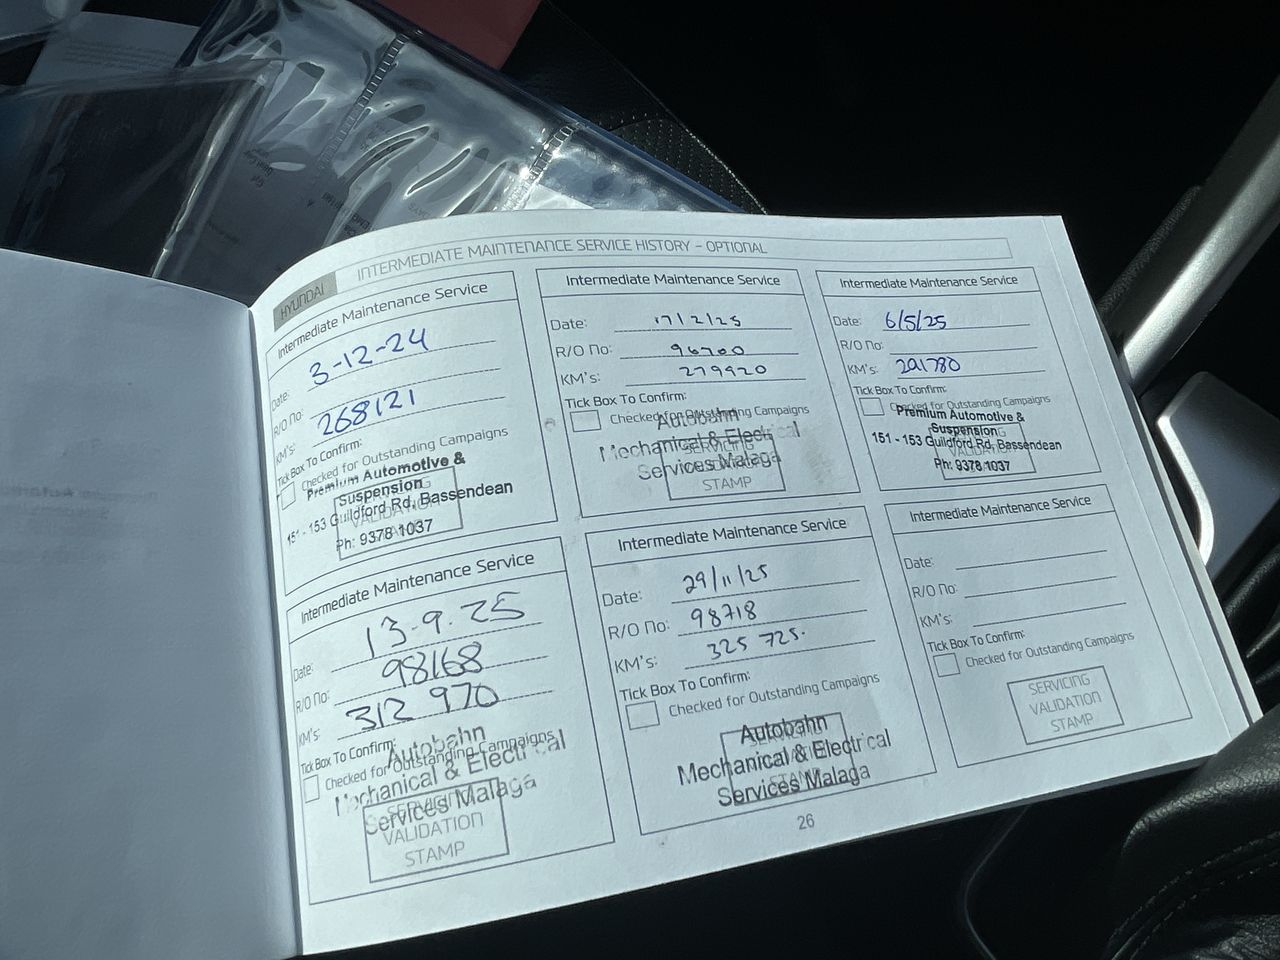 HYUNDAI
INTERMEDIATE MAINTENANCE SERVICE HISTORY – OPTIONAL
Intermediate Maintenance Service
Date: 3-12-24
R/O No:
KM's: 268121
Tick Box To Confirm:
Checked for Outstanding Campaigns
Premium Automotive &
Suspension
151 - 153 Guildford Rd, Bassendean
Ph: 9378 1037
Intermediate Maintenance Service
Date: 17/2/25
R/O No: 96700
KM's: 279920
Tick Box To Confirm:
Checked for Outstanding Campaigns
Autobahn
Mechanical & Electrical
Services Malaga
SERVICING
STAMP
Intermediate Maintenance Service
Date: 6/5/25
R/O No:
KM's: 291780
Tick Box To Confirm:
Checked for Outstanding Campaigns
Premium Automotive &
Suspension
151 - 153 Guildford Rd, Bassendean
Ph: 9378 1037
Intermediate Maintenance Service
Date: 13-9-25
R/O No: 98168
KM's: 312 970
Tick Box To Confirm:
Checked for Outstanding Campaigns
Autobahn
Mechanical & Electrical
Services Malaga
SERVICING
VALIDATION
STAMP
Intermediate Maintenance Service
Date: 29/11/25
R/O No: 98718
KM's: 325 725.
Tick Box To Confirm:
Checked for Outstanding Campaigns
Autobahn
Mechanical & Electrical
Services Malaga
Intermediate Maintenance Service
Date:
R/O No:
KM's:
Tick Box To Confirm:
Checked for Outstanding Campaigns
SERVICING
VALIDATION
STAMP
26